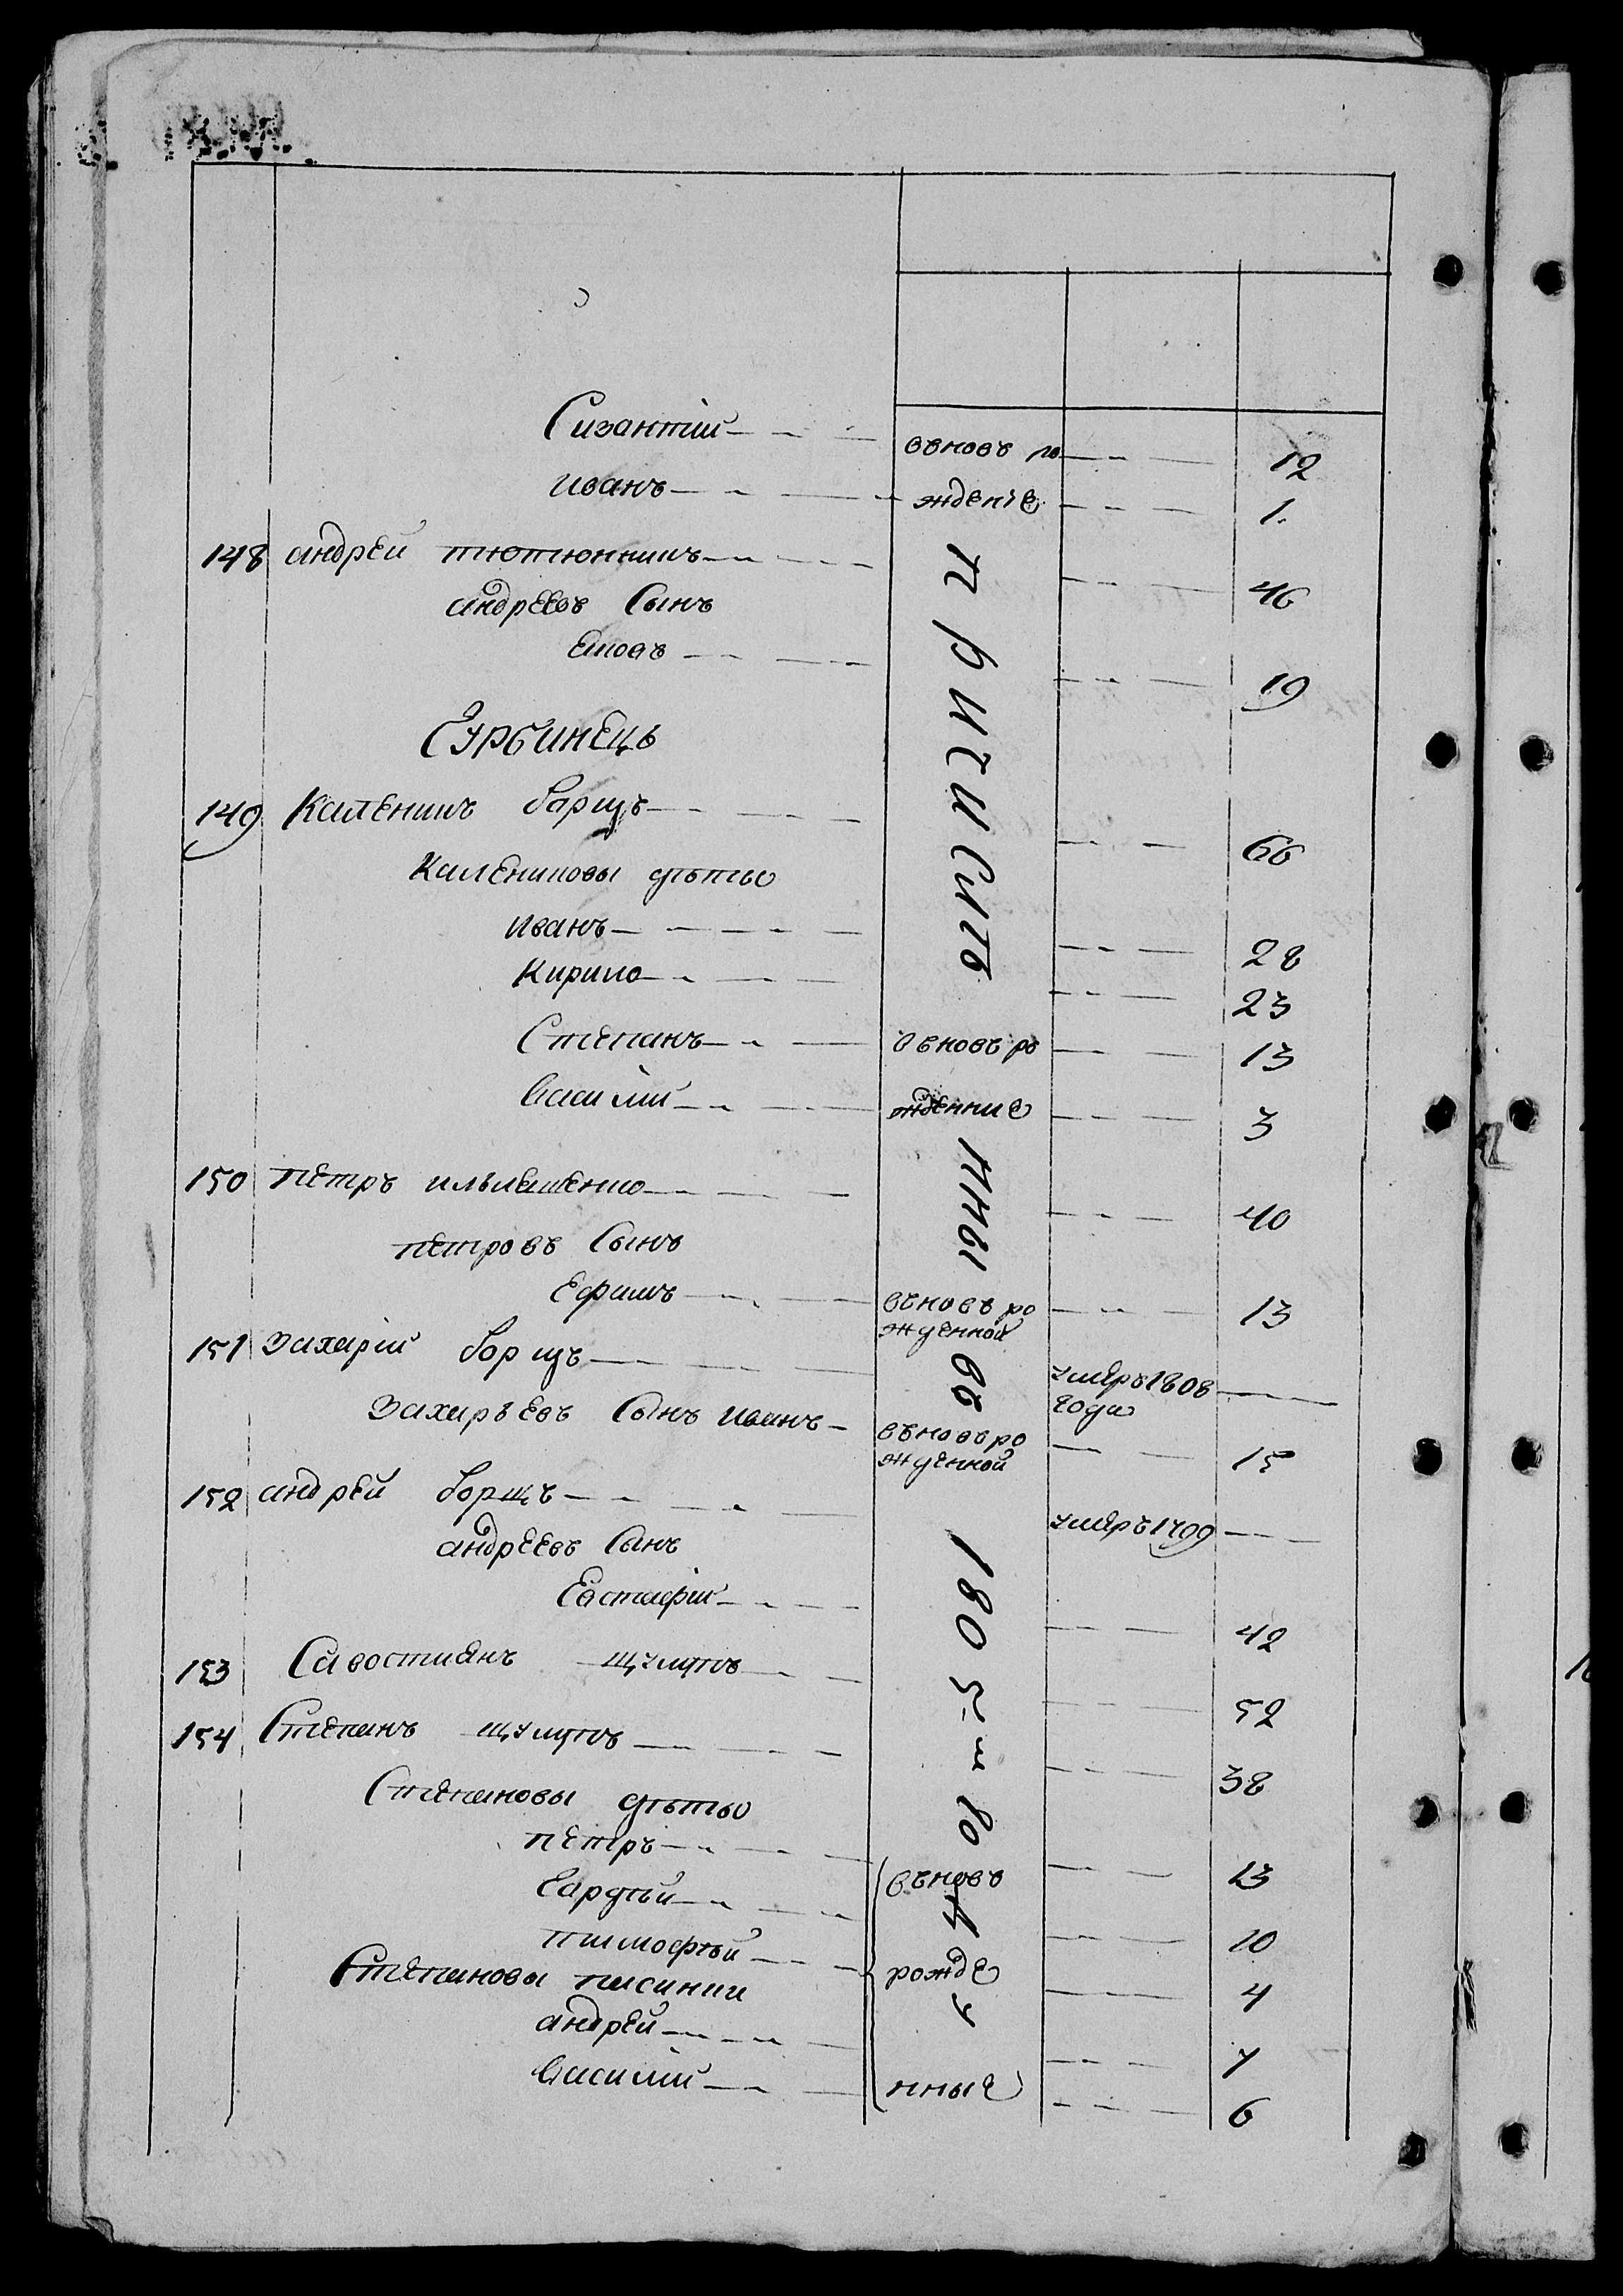 Сизантiй — вѣновъ ро — 12
иванъ — жденiе — 1.
148 андрей тютюнникъ — 46
андреевъ Сынъ
Яковъ — 19
Сурбинецъ
149 Каленикъ борщъ — 66
Калениковы дѣтьи
иванъ — 28
Кирило — 23
Степанъ — вѣновъ ро — 13
василiй — ждение — 3
150 петръ ильяшенко — 40
петровъ Сынъ
Ефимъ — вѣновъ ро жденной — 13
151 Захарiй борщъ — умеръ 1808 года —
Захарьевъ Сынъ иванъ — вѣновъ ро жденной — 15
152 андрей борщъ — умеръ 1799 —
андреевъ Сынъ
Евстафiй — 42
153 Савостиянъ — 52
154 Степанъ — 38
Степановы дѣтьи
петръ — вѣновъ — 13
— 10
тимофѣй — рожде — 4
Степановы пасинки
андрей — 7
василiй — нные — 6
въ 1805-м году